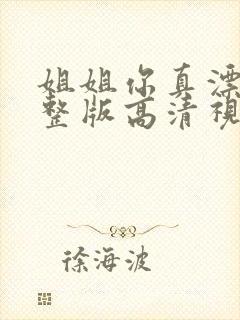 姐姐你真漂
整版高清視
徐海波